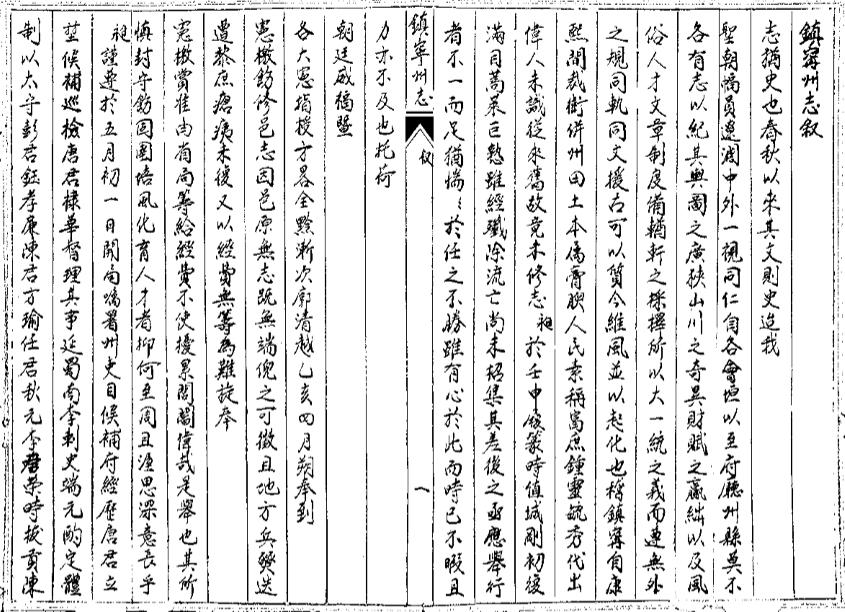 鎮寧州志叙
志猶史也春秋以來其文則史迨我
聖朝幅員遼濶中外一視同仁自各會垣以至府廳州縣莫不
各有志以紀其輿圖之廣狹山川之奇異財賦之贏絀以及風
俗人才文章制度備輶軒之採擇所以大一統之義而連無外
之規同軌同文援古可以質今維風並以起化也稱鎮寧自康
熙間裁衛併州田土本屬膏腴人民素稱富庶鍾靈毓秀代出
偉人未識從來舊故竟未修志昶於壬申假篆時值城剛初復
滿目蒿萊巨憝雖經殲除流亡尚未招集其差後之亟應舉行
者不一而足猶惴惴於任之不勝雖有心於此而時已不暇且
鎮寧州志 叙 一
力亦不及也托荷
朝廷威福暨
各大憲指授方畧全黔漸次廓清越乙亥四月朔奉到
憲檄飭修邑志因邑原無志既無端倪之可徵且地方兵燹迭
遭黎庶瘡痍未復又以經費無籌為難旋奉
憲檄賞准由省局等給經費不使擾累閭閻偉哉是舉也其所
慎封守飭囹圄培風化育人才者抑何至周且渥思深意長乎
昶謹遵於五月初一日開局囑署州吏目候補府經歷詹君立
堃候補巡檢唐君棣華督理其事延蜀南李刺史端元酌定體
制以太守彭君鈺孝廉陳君方瑜任君秋元李君榮時拔貢陳